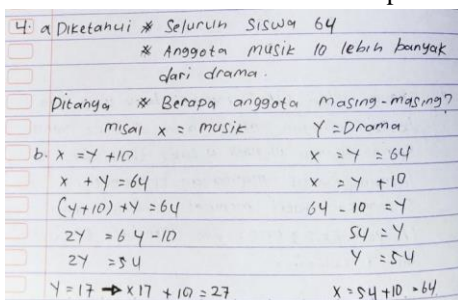 4. a Diketahui * Seluruh siswa 64
* Anggota musik 10 lebih banyak
dari drama.
Ditanya * Berapa anggota masing-masing?
misal x = musik Y = Drama
b. x = Y + 10 x = Y = 64
x + Y = 64 x = Y + 10
(Y+10) + Y = 64 64 - 10 = Y
2Y = 64 - 10 54 = Y
2Y = 54 Y = 54
Y = 17 → x 17 + 10 = 27 x = 54 + 10 = 64